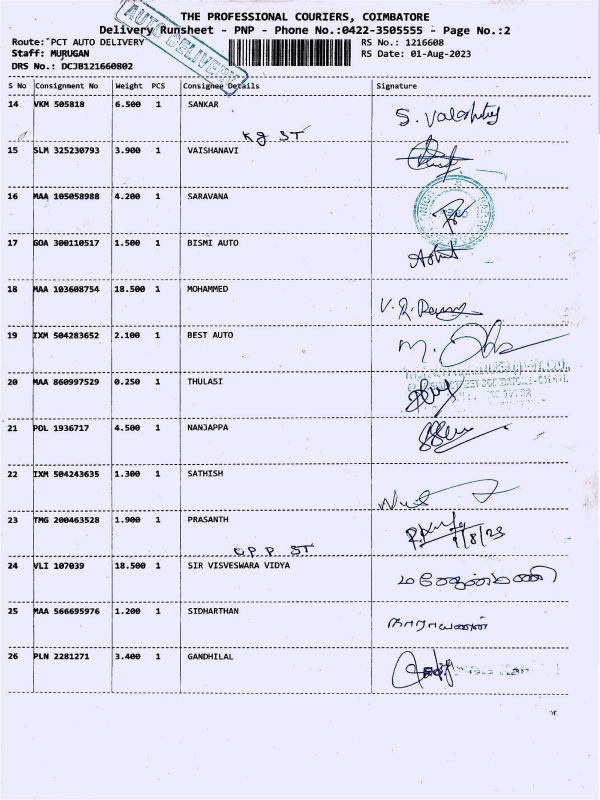 THE PROFESSIONAL COURIERS, COIMBATORE
AUTO DELIVERY
Delivery Runsheet - PNP - Phone No.:0422-3505555 - Page No.:2
Route: PCT AUTO DELIVERY RS No.: 1216608
Staff: MURUGAN RS Date: 01-Aug-2023
DRS No.: DCJB121660802
S No Consignment No Weight PCS Consignee Details Signature
14 VKM 505818 6.500 1 SANKAR
KG ST
15 SLM 325230793 3.900 1 VAISHANAVI
16 MAA 105058988 4.200 1 SARAVANA
17 GOA 300110517 1.500 1 BISMI AUTO
18 MAA 103608754 18.500 1 MOHAMMED
19 IXM 504283652 2.100 1 BEST AUTO
20 MAA 860997529 0.250 1 THULASI
21 POL 1936717 4.500 1 NANJAPPA
22 IXM 504243635 1.300 1 SATHISH
23 TMG 200463528 1.900 1 PRASANTH
1/8/23
O.P.P ST
24 VLI 107039 18.500 1 SIR VISVESWARA VIDYA
25 MAA 566695976 1.200 1 SIDHARTHAN நாராயணன்
26 PLN 2281271 3.400 1 GANDHILAL